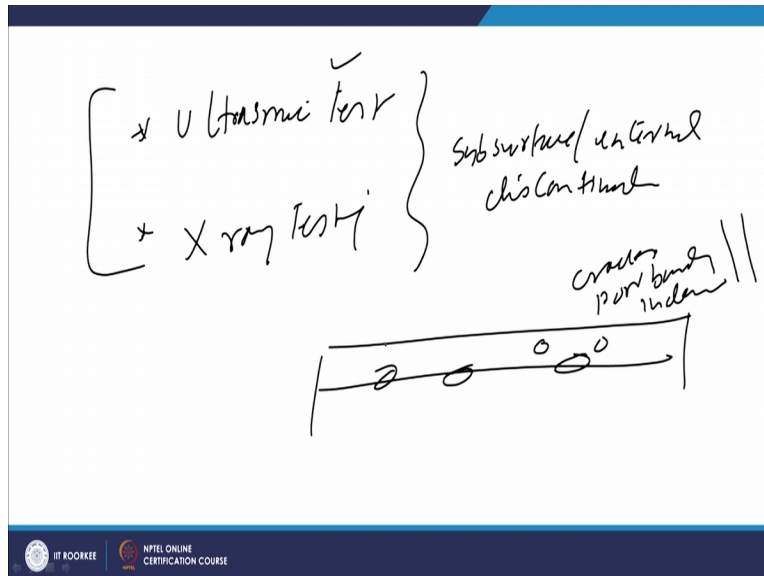 * Ultrasonic Test
* X ray Testing
Subsurface/internal
discontinuity
cracks
poor bond
IIT ROORKEE
NPTEL ONLINE
CERTIFICATION COURSE